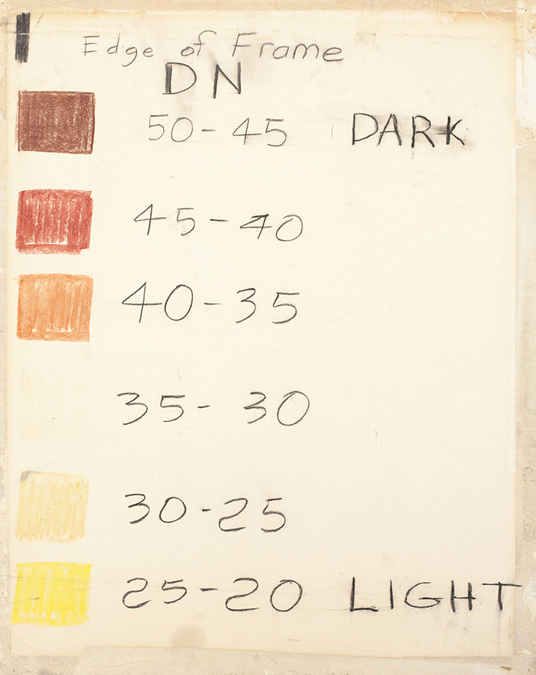 Edge of Frame
DN
50-45 DARK
45-40
40-35
35-30
30-25
25-20 LIGHT